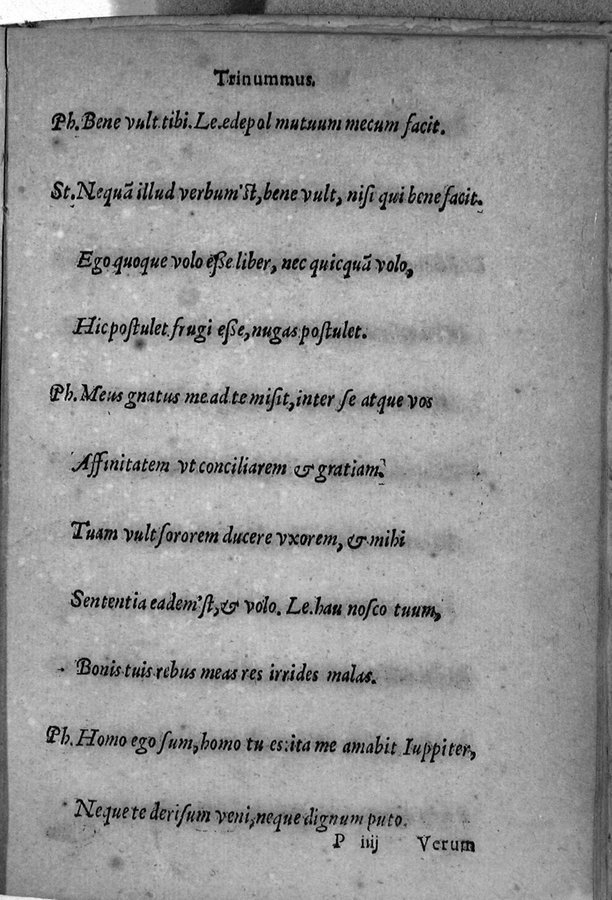 Trinummus.
Ph. Bene vult tibi. Le. edepol mutuum mecum facit.
St. Nequā illud verbum'ſt, bene vult, niſi qui bene facit.
Ego quoque volo eſſe liber, nec quicquā volo,
Hic poſtulet frugi eſſe, nugas poſtulet.
Ph. Meus gnatus me ad te miſit, inter ſe atque vos
Affinitatem vt conciliarem & gratiam.
Tuam vult ſororem ducere vxorem, & mihi
Sententia eadem'ſt, & volo. Le. hau noſco tuum,
Bonis tuis rebus meas res irrides malas.
Ph. Homo ego ſum, homo tu es: ita me amabit Iuppiter,
Neque te deriſum veni, neque dignum puto.
P iiij Verum